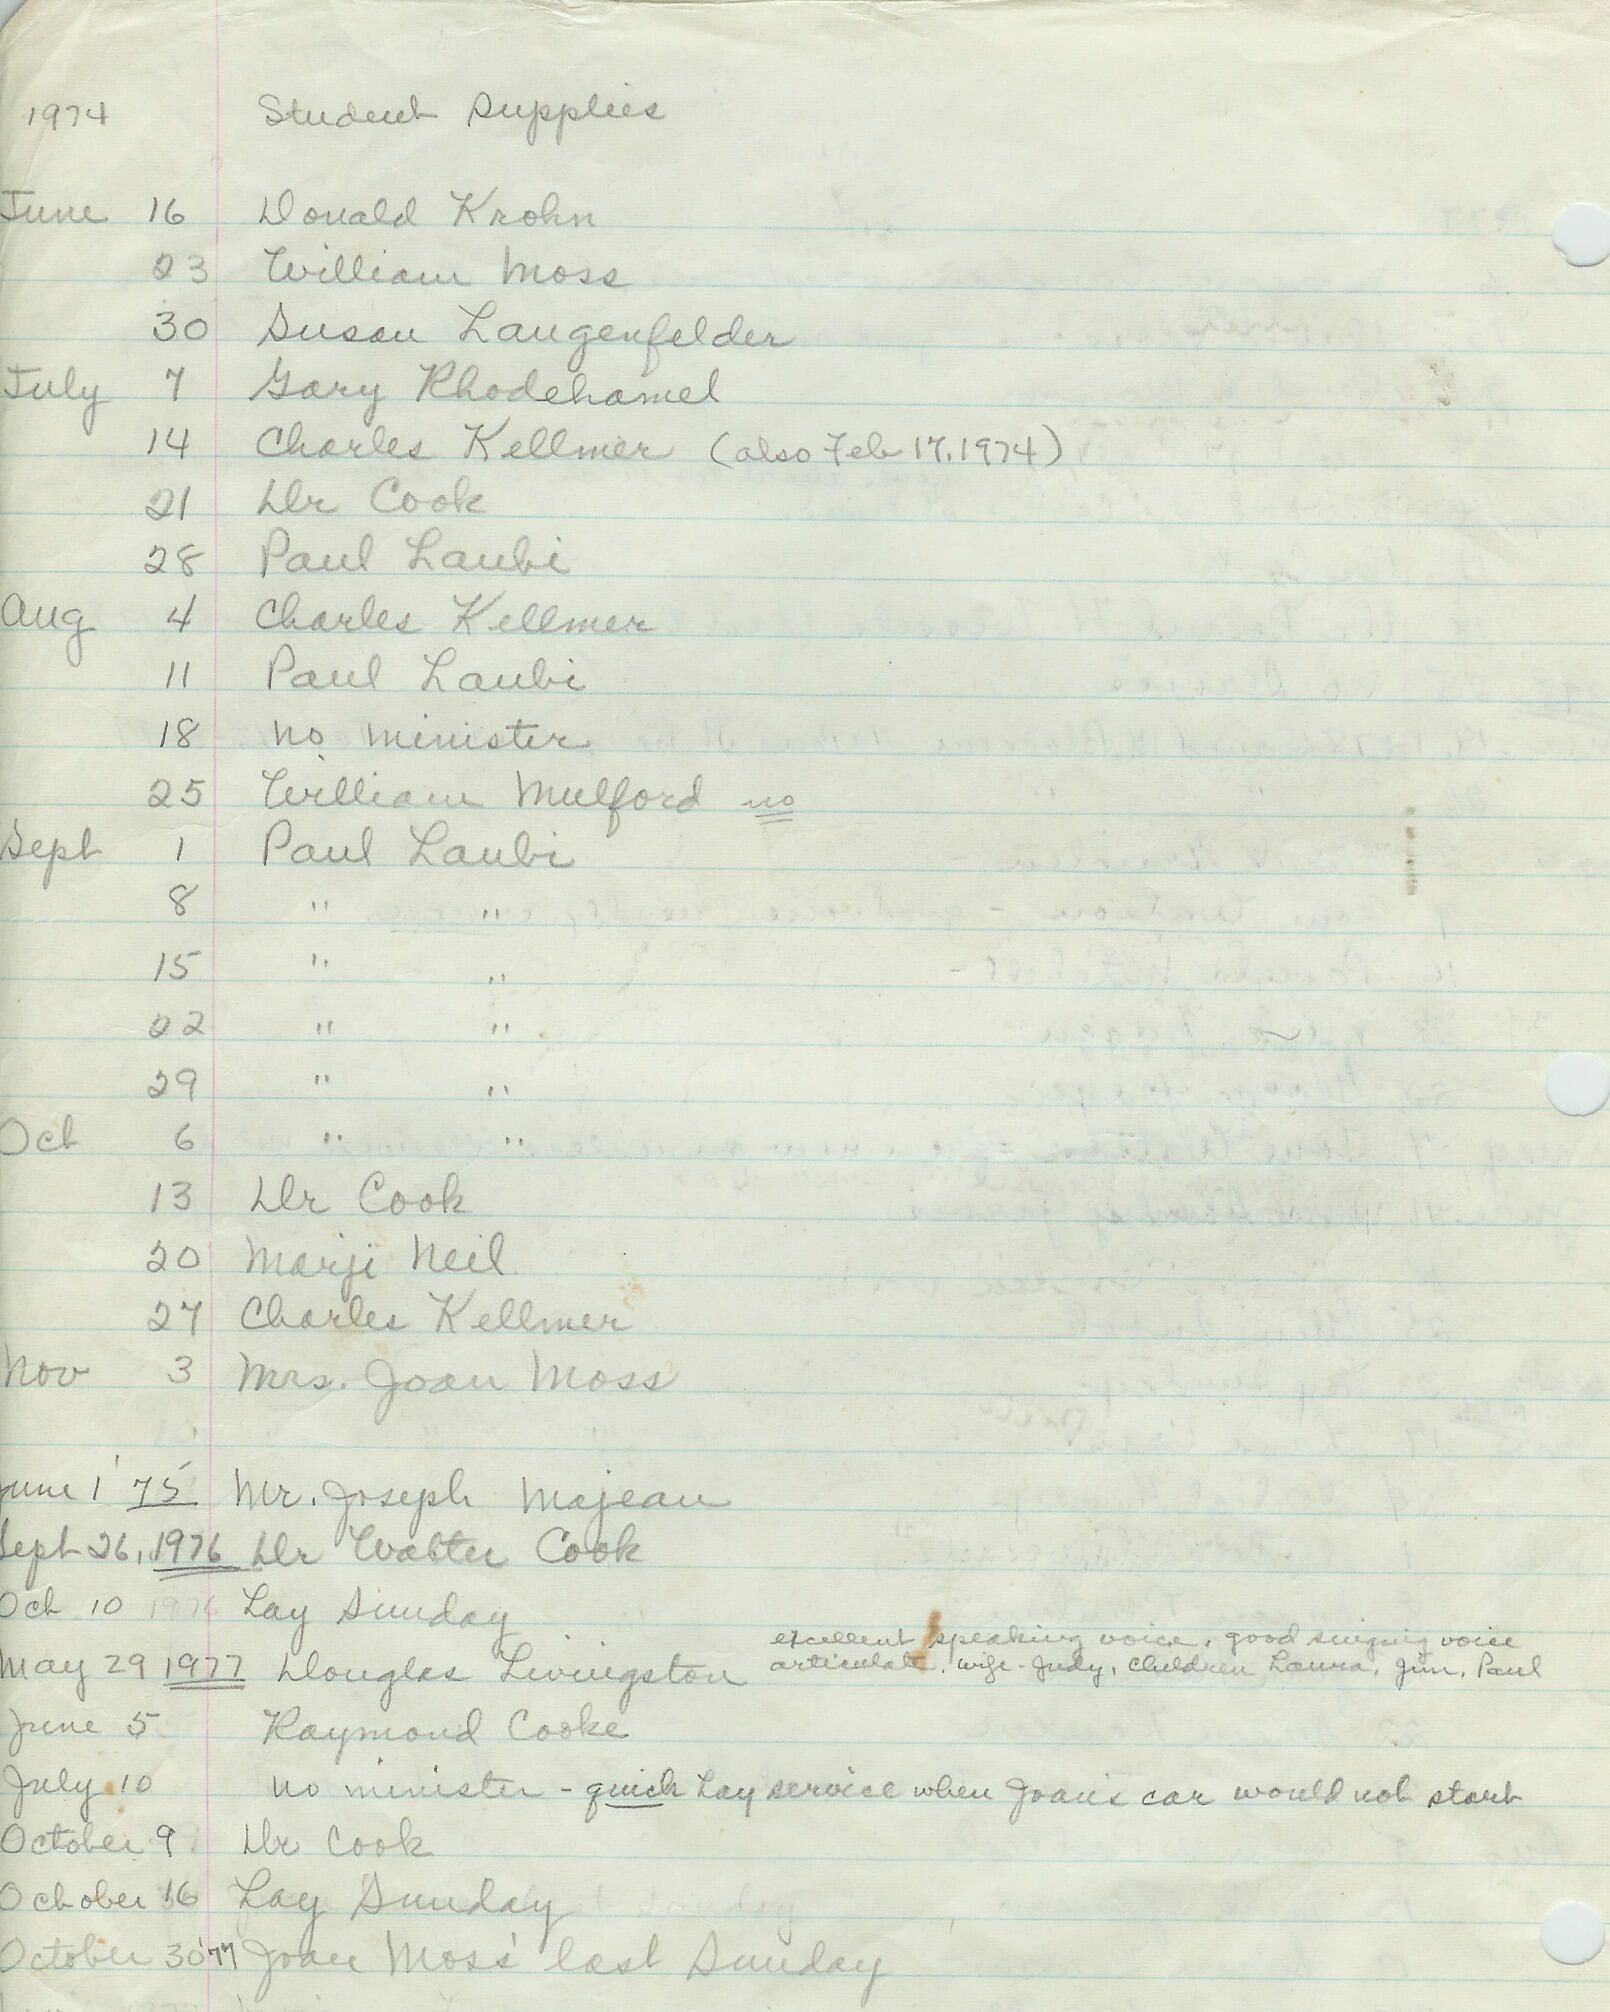 1974 Student Supplies
June 16 Donald Krohn
23 William Moss
30 Susan Langenfelder
July 7 Gary Rhodehamel
14 Charles Kellmer (also Feb 17, 1974)
21 Dr Cook
28 Paul Laubi
Aug 4 Charles Kellmer
11 Paul Laubi
18 no minister
25 William Mulford no
Sept 1 Paul Laubi
8 " "
15 " "
22 " "
29 " "
Oct 6 " "
13 Dr Cook
20 Marji Neil
27 Charles Kellmer
Nov 3 Mrs. Joan Moss
June 1 '75 Mr. Joseph Majeau
Sept 26, 1976 Dr Walter Cook
Oct 10 1976 Lay Sunday
excellent speaking voice, good singing voice
May 29 1977 Douglas Livingston articulate, wife - Judy, children Laura, Jim, Paul
June 5 Raymond Cooke
July 10 no minister - quick Lay service when Joan's car would not start
October 9 Dr Cook
October 16 Lay Sunday
October 30 '77 Joan Moss' last Sunday